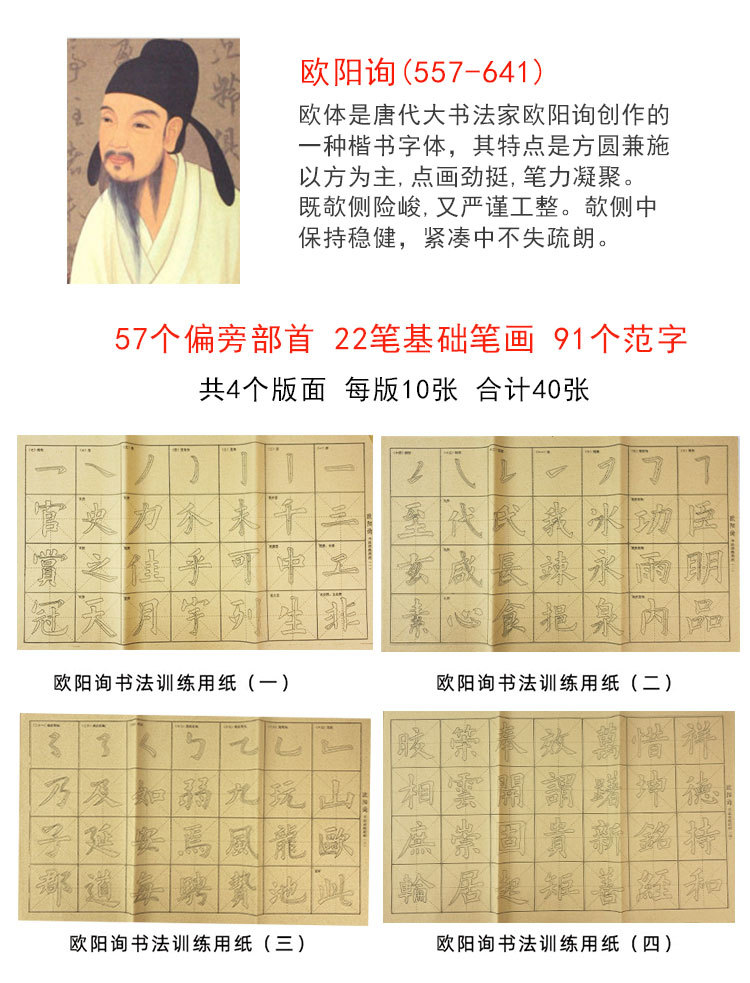 欧阳询(557-641)
欧体是唐代大书法家欧阳询创作的
一种楷书字体，其特点是方圆兼施
以方为主,点画劲挺,笔力凝聚。
既欹侧险峻,又严谨工整。欹侧中
保持稳健，紧凑中不失疏朗。
57个偏旁部首 22笔基础笔画 91个范字
共4个版面 每版10张 合计40张
官 史 力 介 未 千 三
賞 之 佳 乎 可 中 工
冠 天 月 宇 列 生 非
欧阳询
欧阳询书法训练用纸（一）
至 代 民 我 冰 功 臣
玄 成 長 竦 永 雨 明
素 心 食 挹 泉 内 品
欧阳询
欧阳询书法训练用纸（二）
乃 及 如 弱 九 玩 山
子 延 安 焉 風 龍 歐
郡 道 每 聘 贊 池 此
欧阳询
欧阳询书法训练用纸（三）
榮 奉 效 萬 惜 祥
相 雲 開 謂 躇 坤 德
庶 崇 固 貴 新 銘 持
輪 居 起 矩 善 經 和
欧阳询
欧阳询书法训练用纸（四）